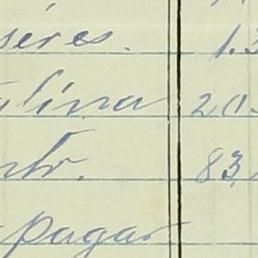 seres. 1.3
lina 20
ntr. 83
pagar